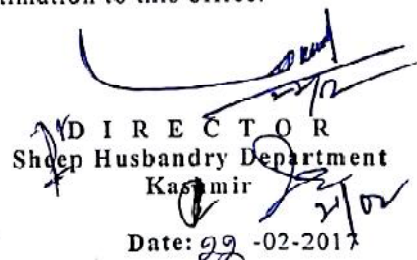 timation to this office.
22/2
D I R E C T O R
Sheep Husbandry Department
Kashmir
2/02
Date: 22 -02-2017